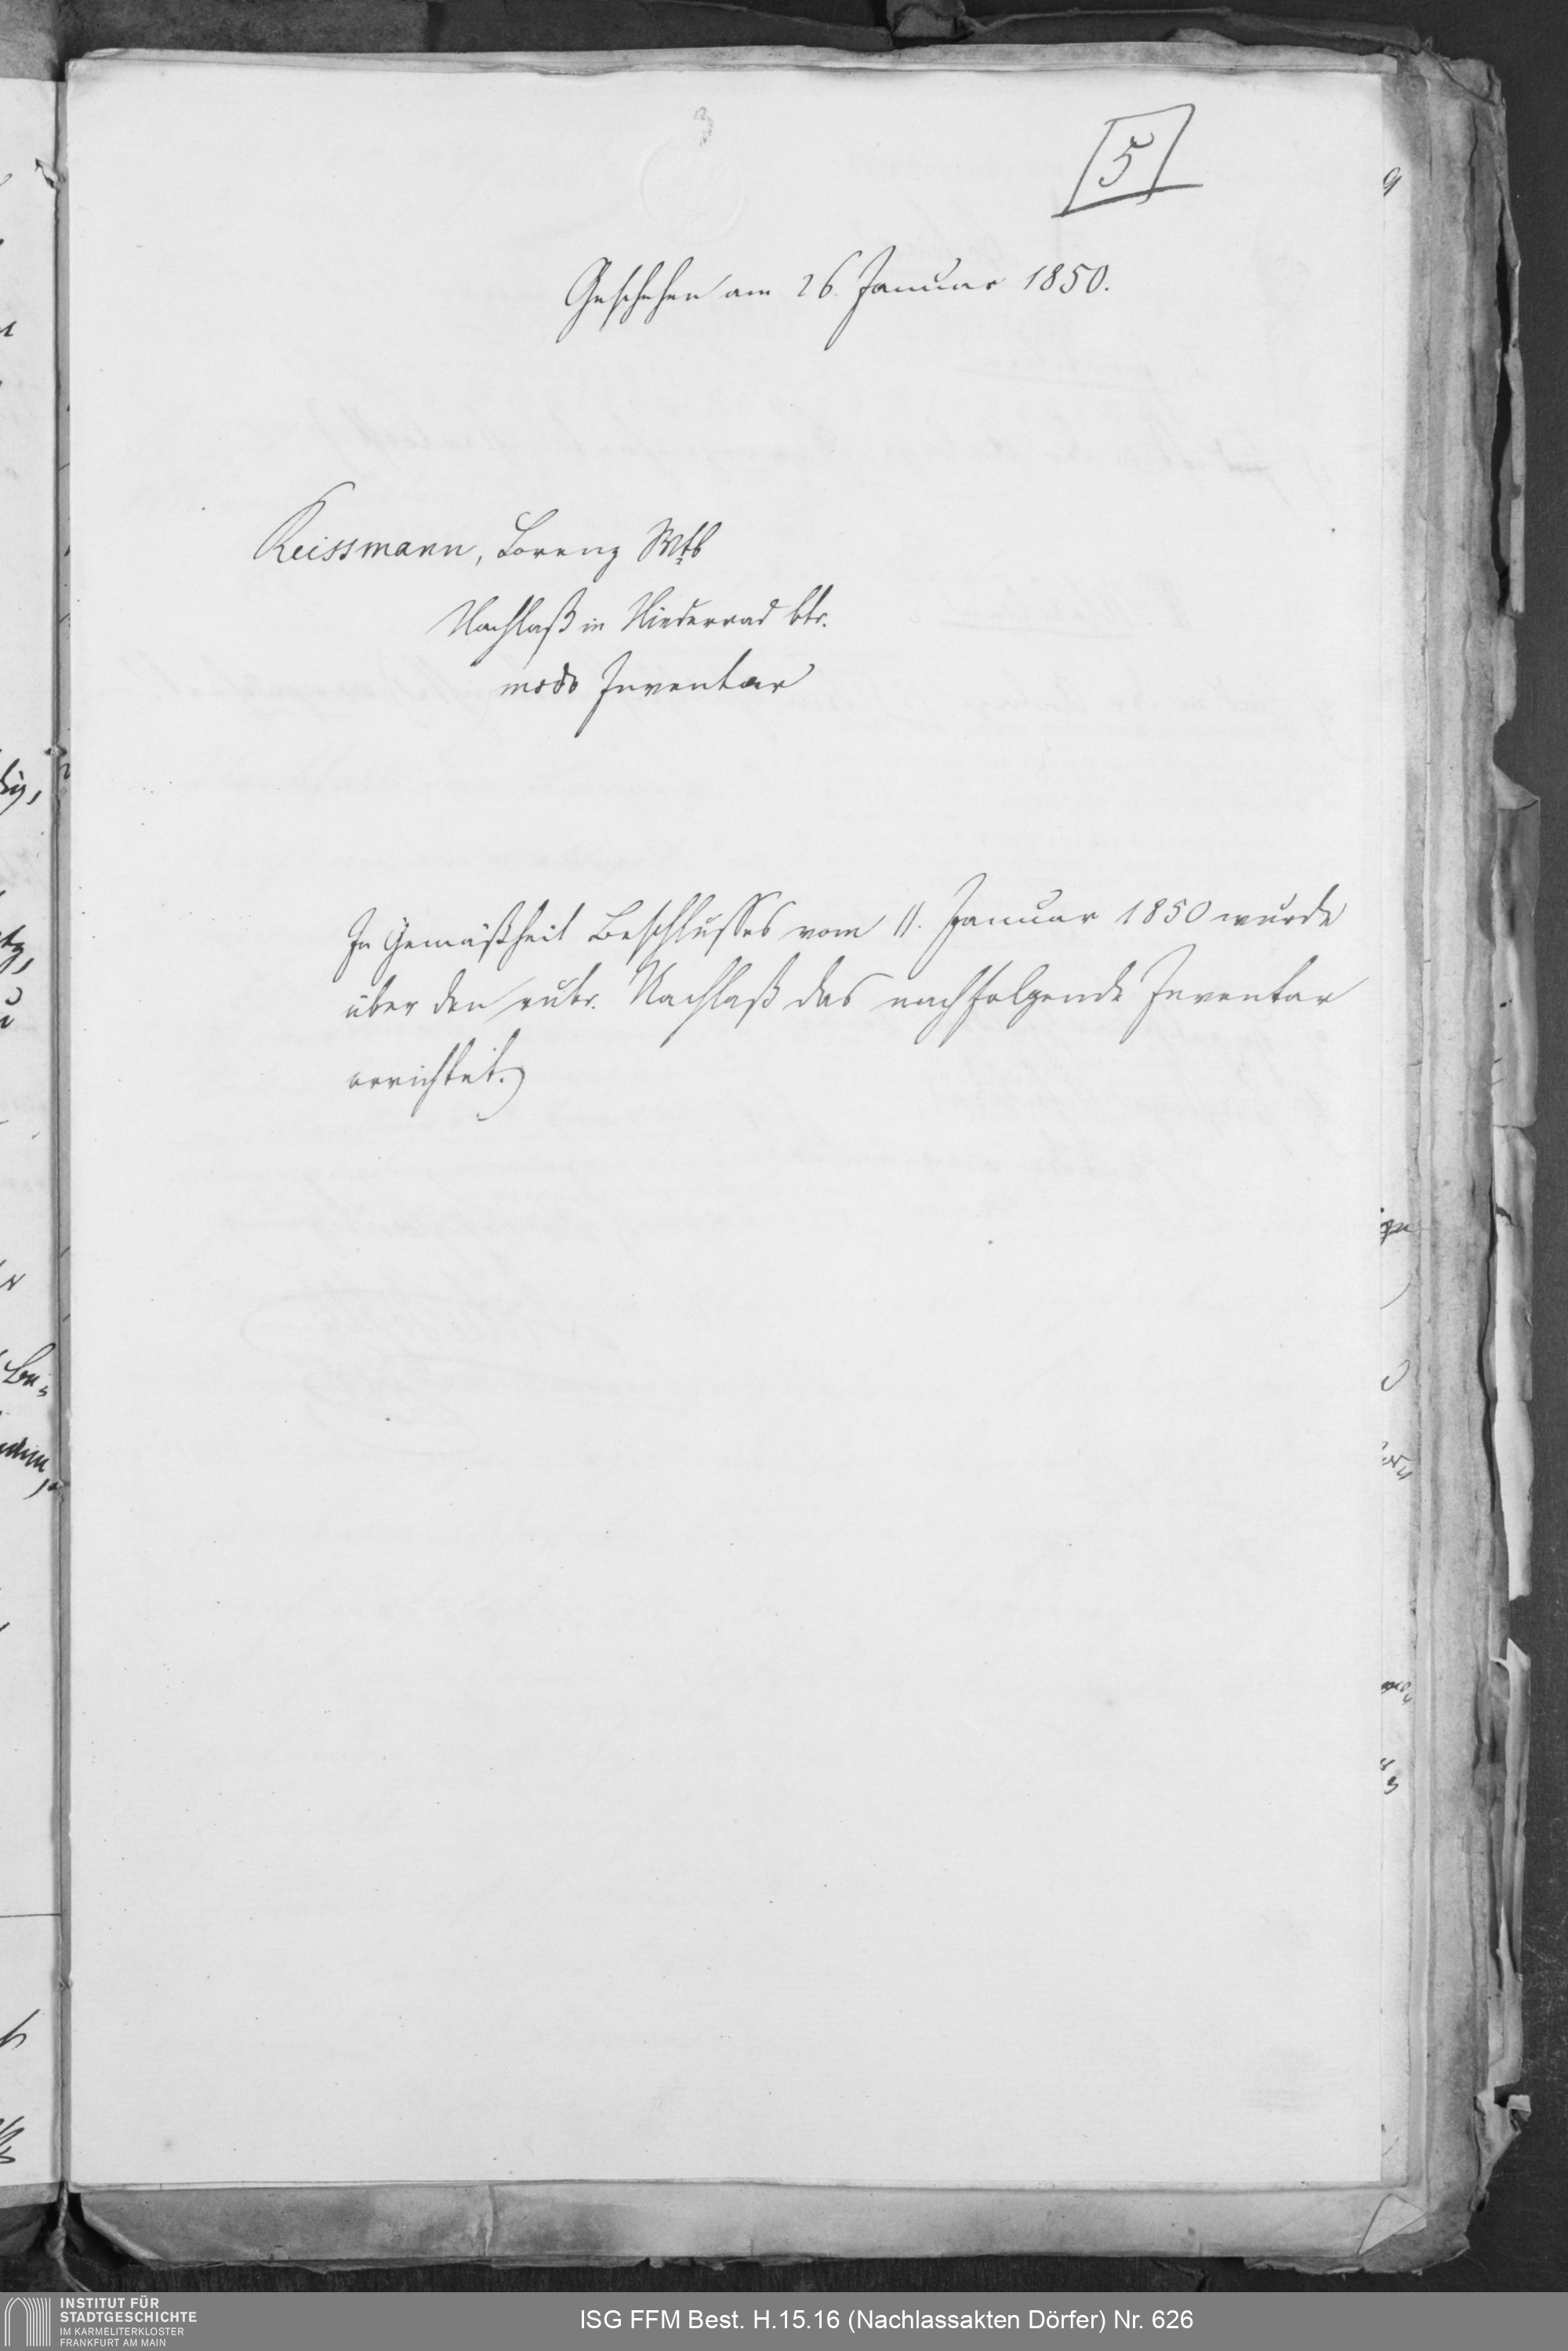 5
Geschehen am 26. Januar 1850.
Reissmann, Lorenz Wtb
Nachlaß in Niederrad btr.
modo Inventar
In Gemäßheit Beschlusses vom 11. Januar 1850 wurde
über den rubr. Nachlaß das nachfolgende Inventar
errichtet.
INSTITUT FÜR
STADTGESCHICHTE
IM KARMELITERKLOSTER
FRANKFURT AM MAIN
ISG FFM Best. H.15.16 (Nachlassakten Dörfer) Nr. 626